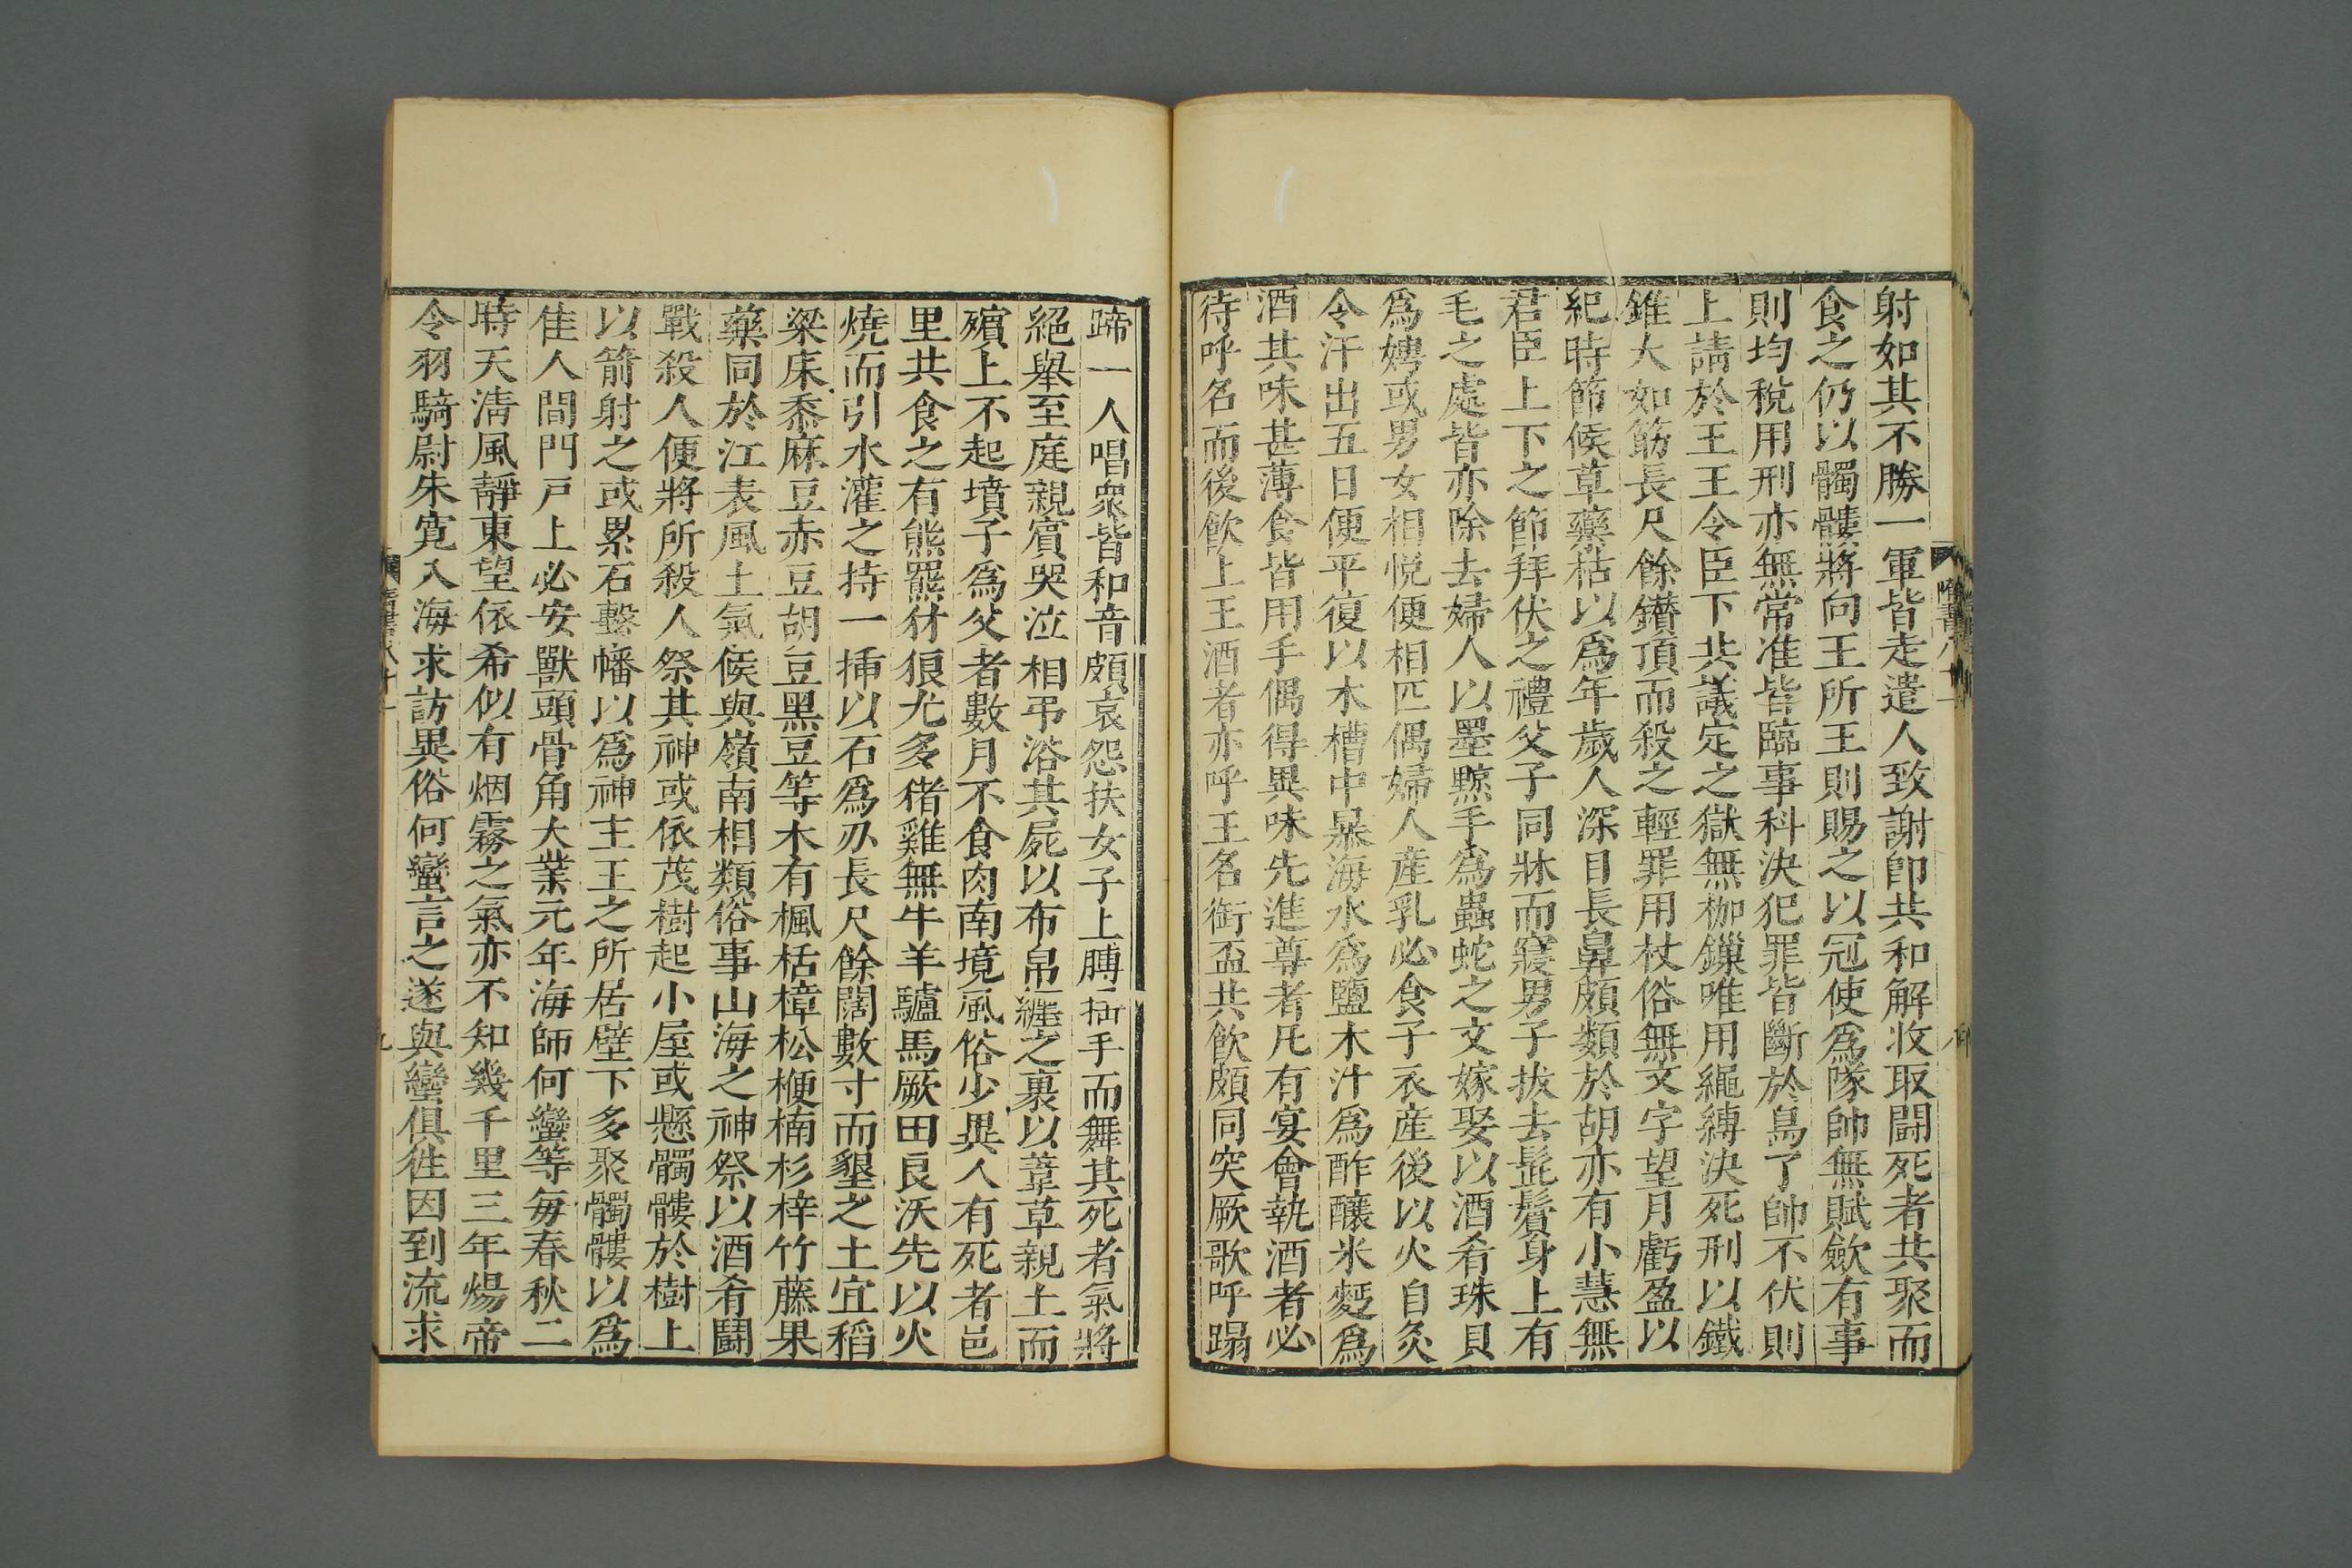 射如其不勝一軍皆走遣人致謝卽共和解收取闘死者共聚而
食之仍以髑髏將向王所王則賜之以冠使爲隊帥無賦斂有事
則均稅用刑亦無常准皆臨事科決犯罪皆斷於鳥了帥不伏則
上請於王王令臣下共議定之獄無枷鏁唯用繩縛決死刑以鐵
錐大如筯長尺餘鑽頂而殺之輕罪用杖俗無文字望月虧盈以
紀時節候草藥枯以爲年歲人深目長鼻頗類於胡亦有小慧無
君臣上下之節拜伏之禮父子同牀而寢男子拔去髭鬢身上有
毛之處皆亦除去婦人以墨黥手爲蟲蛇之文嫁娶以酒肴珠貝
爲娉或男女相悅便相匹偶婦人産乳必食子衣産後以火自灸
令汗出五日便平復以木槽中暴海水爲鹽木汁爲酢釀米麪爲
酒其味甚薄食皆用手偶得異味先進尊者凡有宴會執酒者必
待呼名而後飮上王酒者亦呼王名銜盃共飮頗同突厥歌呼蹋
蹄一人唱衆皆和音頗哀怨扶女子上膊揺手而舞其死者氣將
絕舉至庭親賓哭泣相弔浴其屍以布帛纒之裹以葦草親土而
殯上不起墳子爲父者數月不食肉南境風俗少異人有死者邑
里共食之有熊羆豺狼尤多猪雞無牛羊驢馬厥田良沃先以火
燒而引水灌之持一揷以石爲刃長尺餘闊數寸而墾之土宜稻
粱床黍麻豆赤豆胡豆黑豆等木有楓栝樟松楩楠杉梓竹藤果
藥同於江表風土氣候與嶺南相類俗事山海之神祭以酒肴鬪
戰殺人便將所殺人祭其神或依茂樹起小屋或懸髑髏於樹上
以箭射之或累石繫幡以爲神主王之所居壁下多聚髑髏以爲
隹人間門戸上必安獸頭骨角大業元年海師何蠻等毎春秋二
時天淸風靜東望依希似有烟霧之氣亦不知幾千里三年煬帝
令羽騎尉朱寛入海求訪異俗何蠻言之遂與蠻俱徃因到流求